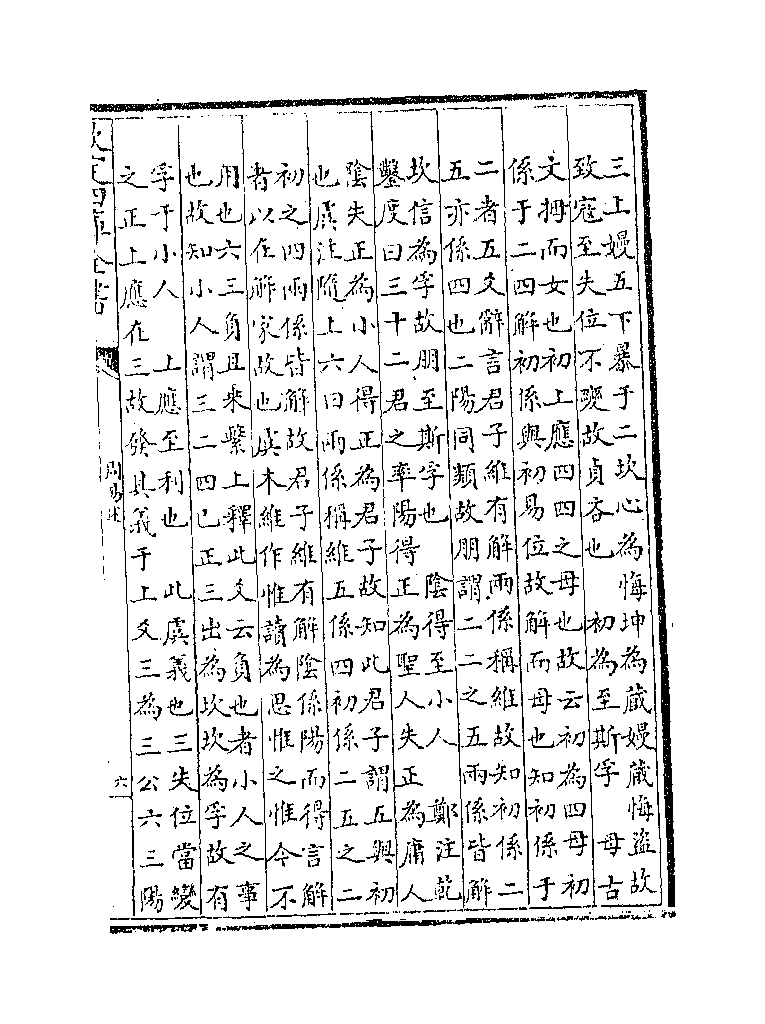 三上嫚五下暴于二坎心為悔坤為藏嫚藏悔盜故
致寇至失位不變故貞吝也　初為至斯孚　母古
文拇而女也初上應四四之母也故云初為四母初
係于二四解初係與初易位故解而母也知初係于
二者五爻辭言君子維有解兩係稱維故知初係二
五亦係四也二陽同類故朋謂二二之五兩係皆解
坎信為孚故朋至斯孚也　陰得至小人　鄭注乾
鑿度曰三十二君之率陽得正為聖人失正為庸人
陰失正為小人得正為君子故知此君子謂五與初
也虞注隨上六曰兩係稱維五係四初係二五之二
初之四兩係皆解故君子維有解陰係陽而得言解
者以在解家故也虞本維作惟讀為思惟之惟今不
用也六三負且乗繫上釋此爻云負也者小人之事
也故知小人謂三二四已正三出為坎坎為孚故有
孚于小人　上應至利也　此虞義也三失位當變
之正上應在三故發其義于上爻三為三公六三陽
欽定四庫全書
周易述
六